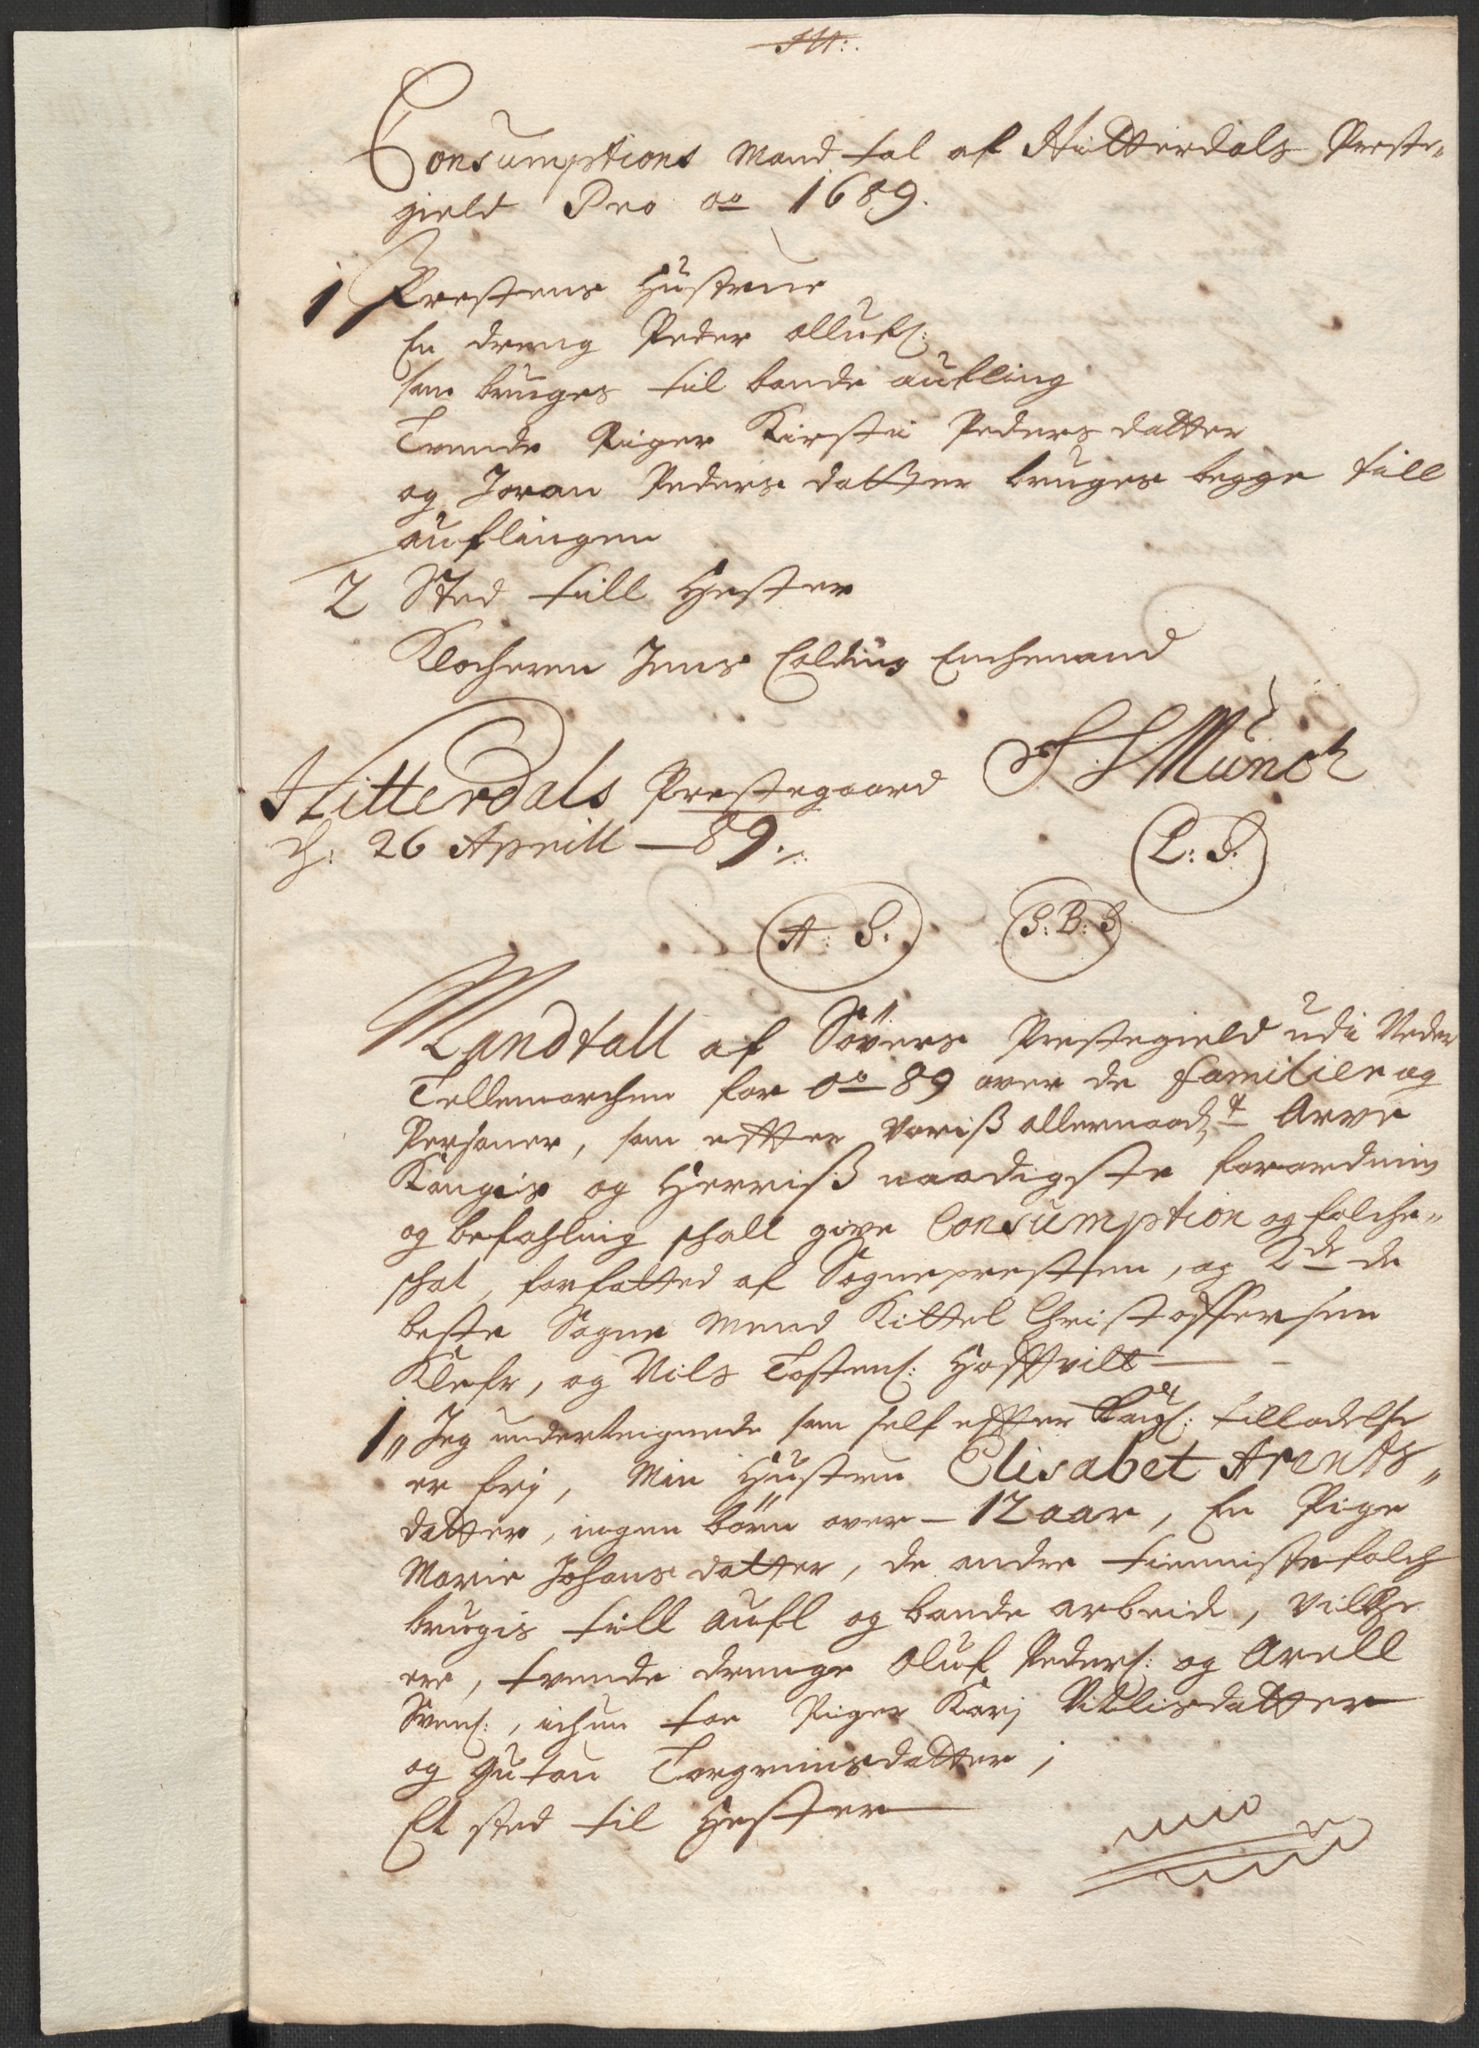 Consumptions Mand tal af Hitterdals Preste-
gield Pro ao 1689.
1 Prestens Hustrue
En dreng Peder Olluf:
som bruges til bonde aufling
Tvende Piger Kirsti Peders datter
og Joran Peders datter bruges begge till
auflingen
2 Sted till Hester
Klocheren Jens Colding Enchemand
Hitterdals Prestegaard
d: 26 Aprill - 89.
Munch
L: S.
A: S.
S: B: S
Mandtall af Søvers Prestegield udi Neder
Tellemarchen for Ao 89 over de familier og
Personer, som effter Voris allernaad:t Arve
Kongis og Herris naadigste forordning
og befahling schall give Consumption og folche-
schat, forfatted af Sognepresten, og 2de de
beste Sogne Mend Kittel Christoffersen
Klefv, og Nils Tostens: Hofftvilt
1, Jeg undertegnede som self effter Kongl: tilladelse
er fri, Min Hustru Elisabet Arents-
datter, ingen børn over - 12 aar, En Pige
Marie Johans datter, de andre tienniste folch
brugis till aufl og bonde arbeid, Vilche
ere, tvende drenge Oluf Peders: og Arell
Svens:, ichun toe Piger Kari Nillisdatter
og Guton Torgrimsdatter,
Et sted til Hester